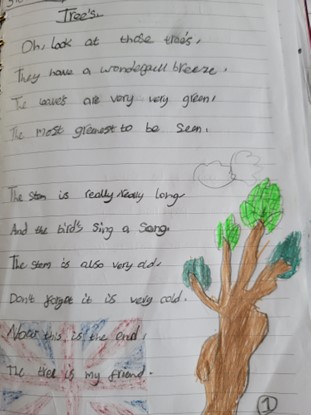 Tree's
Oh, look at those tree's,
They have a wondegull breeze,
The leaves are very very green,
The most greenest to be seen.
The stem is really really long
And the bird's sing a song.
The stem is also very old,
Don't forget it is very cold.
Now this is the end,
The tree is my friend.
1